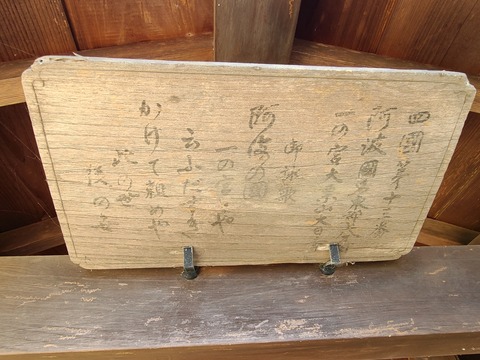 四國第十三番
阿波國名東郡
一の宮大日
御詠歌
阿波の國
一の宮とや
ゆふだすき
かけて頼めや
此の世
後の世